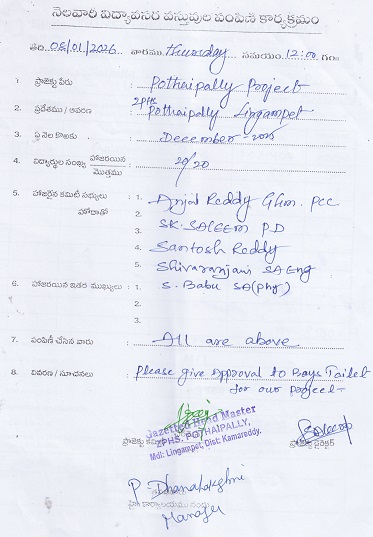 నెలవారి విద్యావసర వస్తువుల పంపిణి కార్యక్రమం
తేది. 08/01/2026 వారము Thursday సమయం. 12:00 గం॥
1. ప్రాజెక్టు పేరు : Pothaipally Project
2. ప్రదేశము / ఆవరణ : ZPHS Pothaipally Lingampet
3. ఏ నెల కొరకు : December-2025
4. విద్యార్థుల సంఖ్య హాజరయిన / మొత్తము : 20/20
5. హాజరైన కమిటీ సభ్యులు : 1. Anjal Reddy GHm. PCC
హోదాతో 2.
3. SK. SALEEM P.D
4. Santosh Reddy
5. Shivaranjani SA Eng
6. హాజరయిన ఇతర ముఖ్యులు : 1. S. Babu SA(Phy)
2.
3.
7. పంపిణీ చేసిన వారు : All are above
8. వివరణ / సూచనలు : Please give Approval to Boys Toilet
for our project
Gazetted Head Master
ZPHS. POTHAIPALLY,
Mdl: Lingampet, Dist: Kamareddy.
ప్రాజెక్టు డైరెక్టర్
P. Dhanalakshmi
Manager